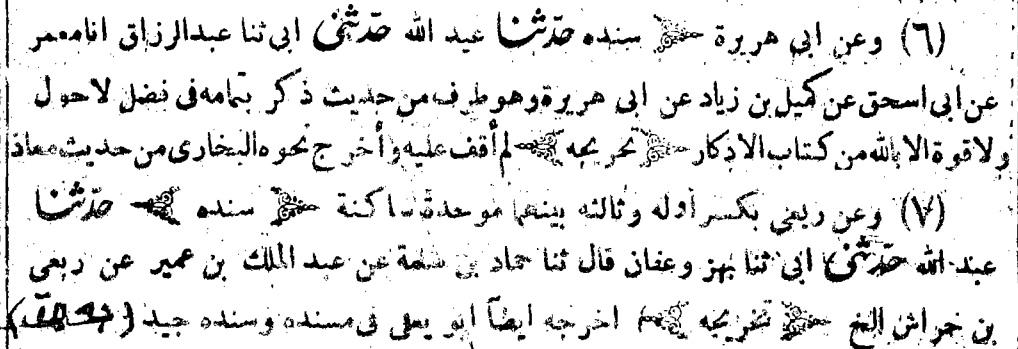 (٦) وعن ابى هريرة ﴿ سنده حدثنا عبد الله حدثنى ابى ثنا عبدالرزاق انامعمر
عن ابى اسحق عن كميل بن زياد عن ابى هريرة وهو طرف من حديث ذكر بتمامه فى فضل لاحول
ولا قوة الا بالله من كتاب الاذكار ﴿ تخريجه ﴾ لم أقف عليه وأخرج نحوه البخارى من حديث معاذ
(٧) وعن ربعى بكسر أوله وثالثه بينهما موحدة ساكنة ﴿ سنده ﴾ حدثنا
عبد الله حدثنى ابى ثنا بهز وعفان قال ثنا حماد بن سلمة عن عبد الملك بن عمير عن ربعى
بن خراش الخ ﴿ تخريجه ﴾ اخرجه ايضاً ابو يعلى فى مسنده وسنده جيد